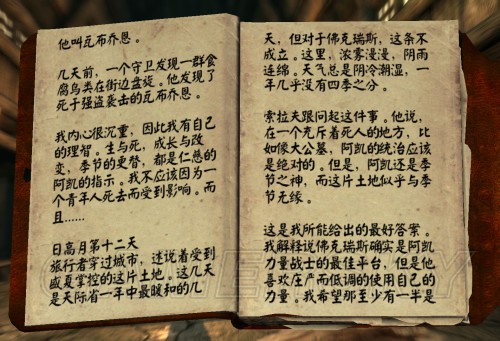 他叫瓦布乔恩。
几天前，一个守卫发现一群食
腐鸟类在街边盘旋。他发现了
死于强盗袭击的瓦布乔恩。
我内心很沉重，因此我有自己
的理智。生与死，成长与改
变，季节的更替，都是仁慈的
阿凯的指示。我不应该因为一
个青年人死去而受到影响。而
且……
日高月第十二天
旅行者穿过城市，述说着受到
盛夏掌控的这片土地。这几天
是天际省一年中最暖和的几
天，但对于佛克瑞斯，这条不
成立。这里，浓雾漫漫，阴雨
连绵。天气总是阴冷潮湿，一
年几乎没有四季之分。
索拉夫跟问起这件事。他说，
在一个充斥着死人的地方，比
如像大公墓，阿凯的统治应该
是绝对的。但是，阿凯还是季
节之神，而这片土地似乎与季
节无缘。
这是我所能给出的最好答案。
我解释说佛克瑞斯确实是阿凯
力量战士的最佳平台，但是他
喜欢庄严而低调的使用自己的
力量。我希望那至少有一半是